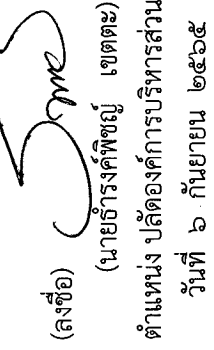 (ลงชื่อ)
(นายธำรงค์พิชญ์ เขตตะ)
ตำแหน่ง ปลัดองค์การบริหารส่วน
วันที่ ๖ กันยายน ๒๕๖๕